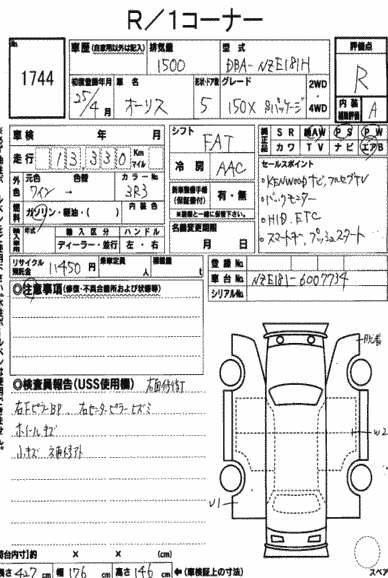 R/1コーナー
No. 1744
車歴 (自家用以外は記入) 排気量 1500 型式 DBA-NZE181H
評価点 R
初度登録年月 25/4月 車名 オーリス 形状・ドア数 5 グレード 150X Sパッケージ 2WD・4WD
内装 補助評価 A
車検 年 月
シフト FAT
純正品 SR 純AW PS PW
カワ TV ナビ エアB
走行 13,330 Km マイル
冷房 AAC
セールスポイント
外色 元色 色替 カラーNo.
ワイン → 3R3
○KENWOODナビ、フルセグTV
新車整備手帳(保証書付) 有・無
○バックモニター
燃料 ガソリン・軽油・( ) 内装色
※書類と一緒に保管されて
○HID、ETC
輸入車 年式 輸入区分 ハンドル
名義変更期限
○スマートキー、プッシュスタート
ディーラー・並行 左・右
月 日
リサイクル預託金 11450 円 乗車定員 人 積載量 t
登録No.
車台No. NZE181-6007734
シリアルNo.
◎注意事項 (修復・不具合箇所および状態等)
脱着
◎検査員報告 (USS使用欄) 右面修復
右Fピラー BP 右センターピラーヒズミ
W2
ホイールキズ
小キズ
U1
荷台内寸]約 × × (cm)
長さ 427 cm 幅 176 cm 高さ 146 cm ←(車検証上の寸法)
スペア